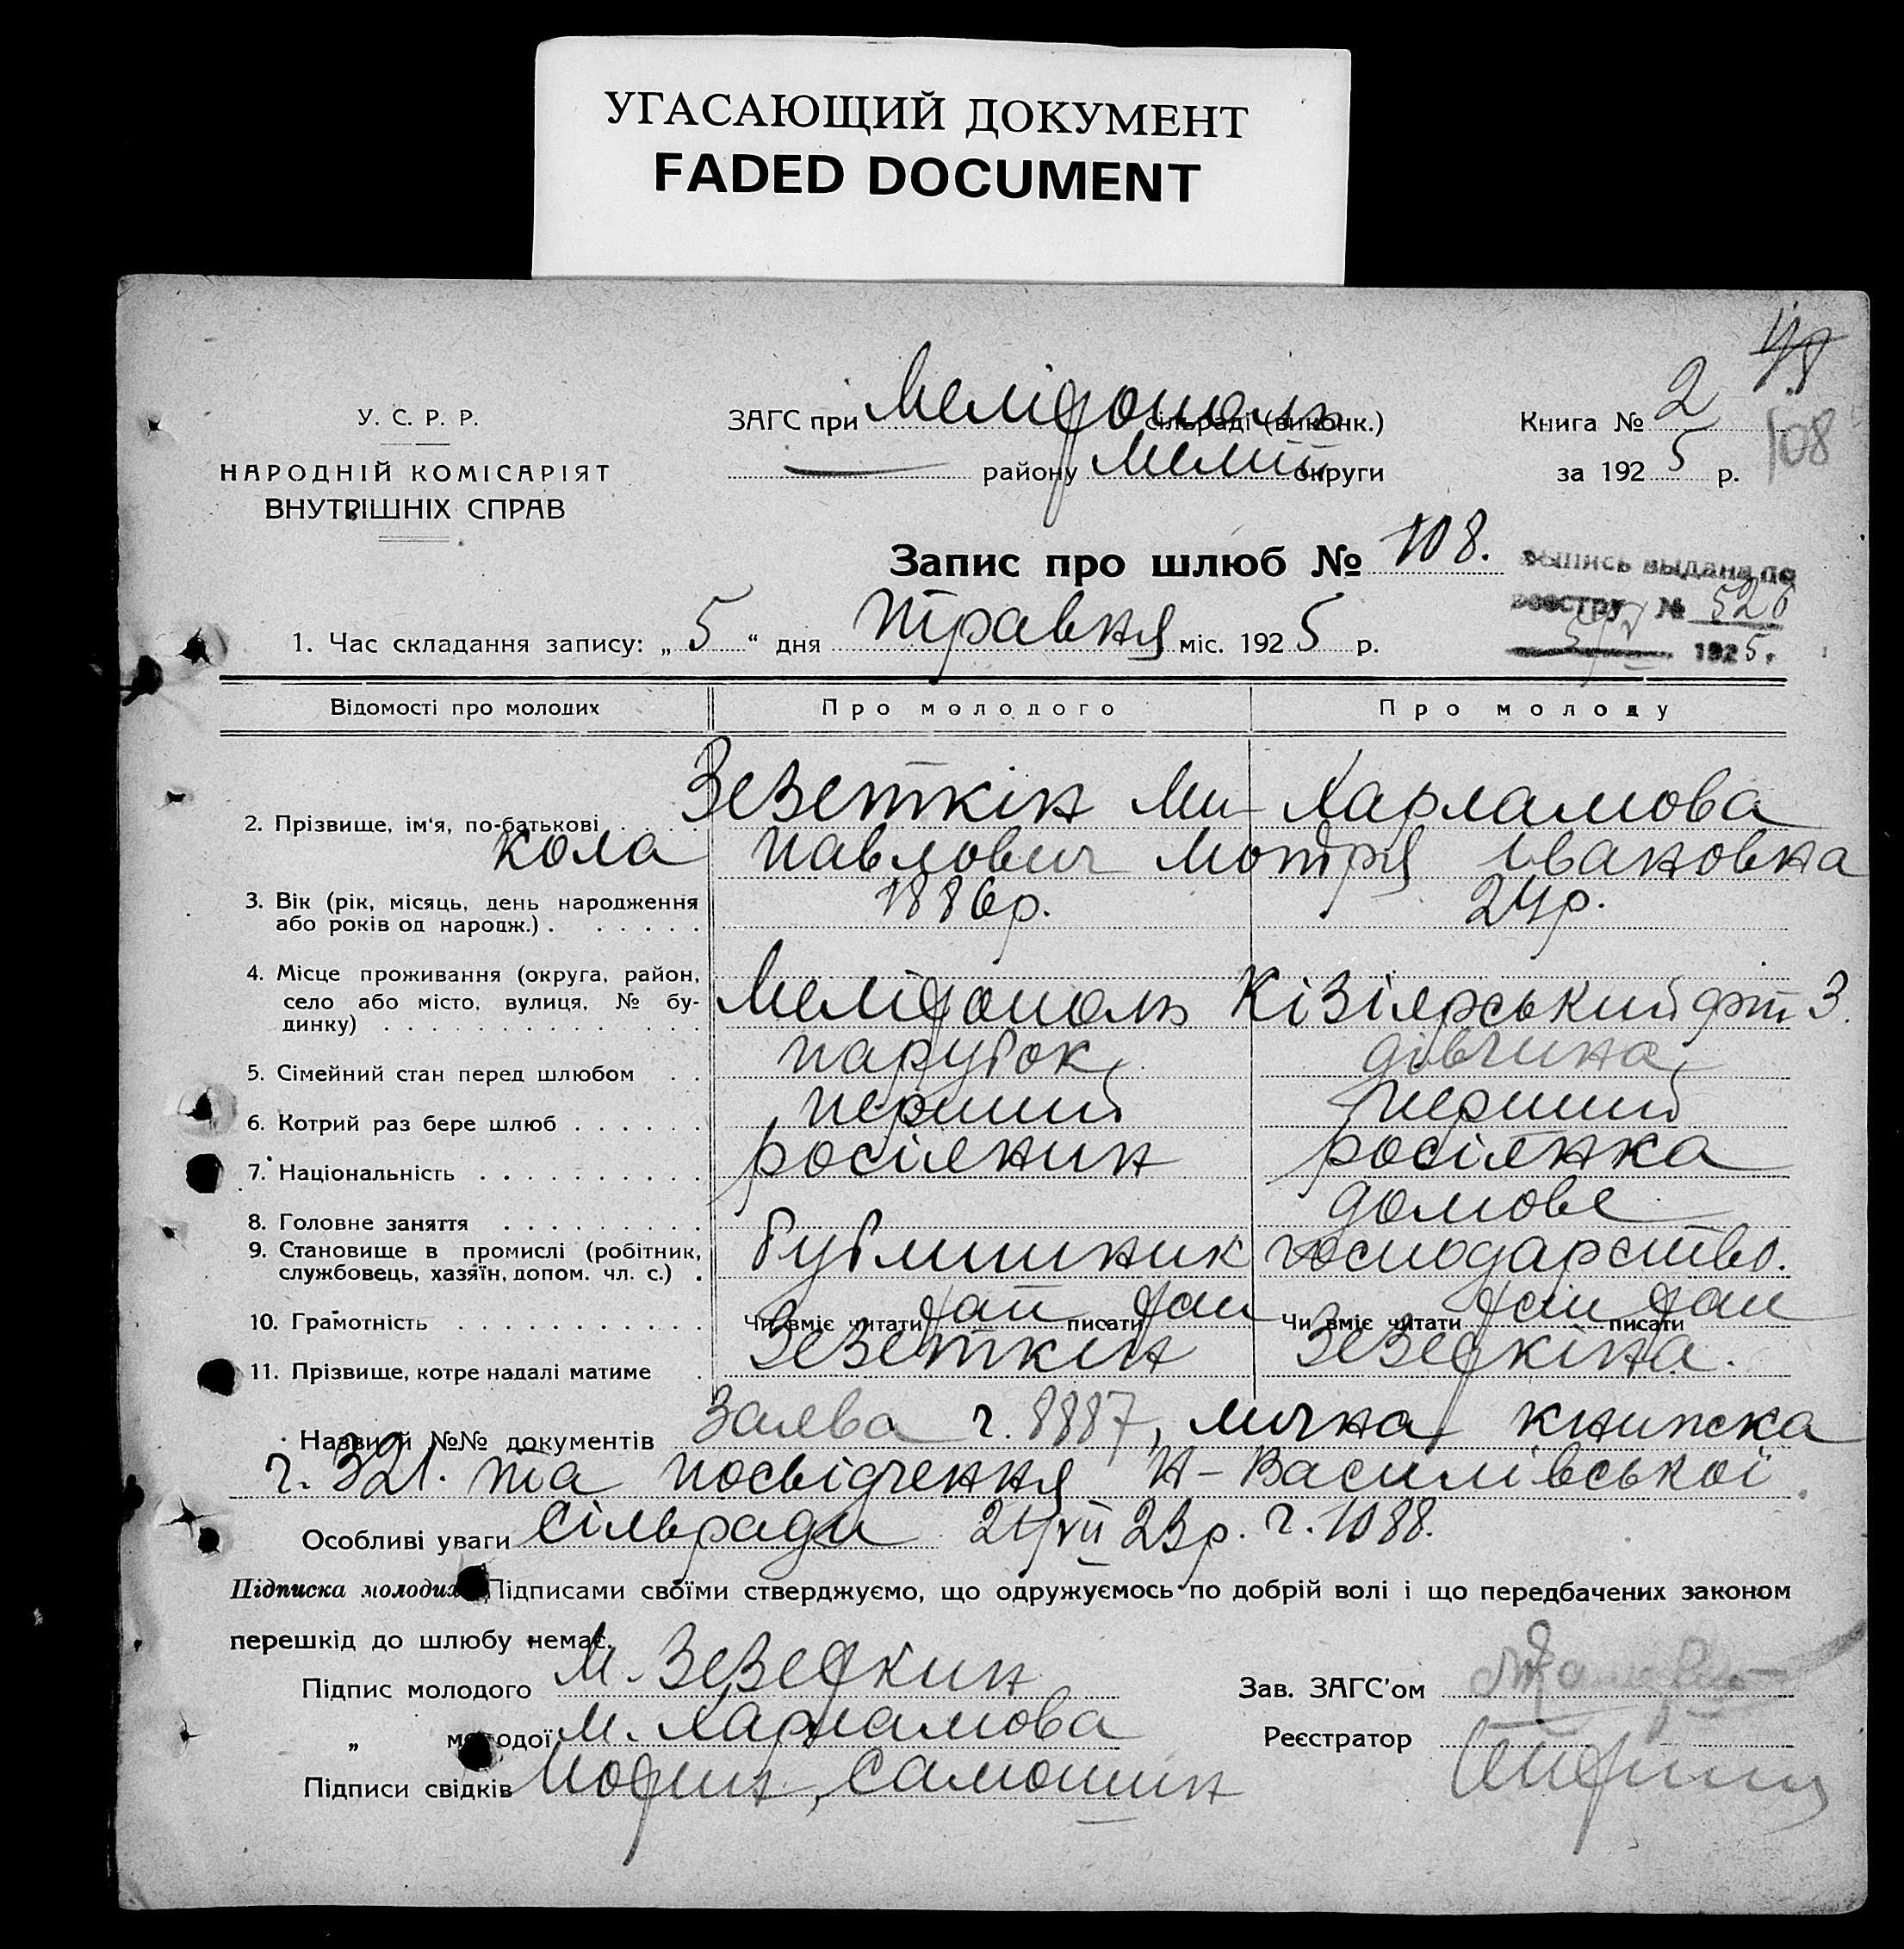 УГАСАЮЩИЙ ДОКУМЕНТ
FADED DOCUMENT
У. С. Р. Р.
НАРОДНІЙ КОМІСАРІЯТ
ВНУТРІШНІХ СПРАВ
ЗАГС при Мелітополь сільраді (виконк.)
— району Меліт округи
Книга № 2
за 1925 р.
108
Запис про шлюб № 108.
выпись выдана по
реестру № 526
5/V 1925.
1. Час складання запису: „5“ дня травня міс. 1925 р.
Відомості про молодих
Про молодого
Про молоду
2. Прізвище, ім'я, по-батькові
Зезеткін Микола Павлович
Харламова Мотря Івановна
3. Вік (рік, місяць, день народження
або років од народж.)
1886р.
24р.
4. Місце проживання (округа, район,
село або місто, вулиця, № бу-
динку)
Мелітополь
Кізіярський 3.
5. Сімейний стан перед шлюбом
парубок
дівчина
6. Котрий раз бере шлюб
перший
перший
7. Національність
росіянин
росіянка
8. Головне заняття
9. Становище в промислі (робітник,
службовець, хазяїн, допом. чл. с.)
бублишник
домове
господарство.
10. Грамотність
Чи вміє читати так писати так
Чи вміє читати так писати так
11. Прізвище, котре надалі матиме
Зезеткін
Зезедкіна.
Назви й №№ документів Заява ч. 8887, лична книжка
ч. 321. та посвідчення Н-Василівської
Особливі уваги Сільради 24/VII 23р. ч. 1088.
Підписка молодих Підписами своїми стверджуємо, що одружуємось по добрій волі і що передбачених законом
перешкід до шлюбу немає.
Підпис молодого М. Зезедкин
„ молодої М. Харламова
Підписи свідків Самошин
Зав. ЗАГС'ом
Реєстратор